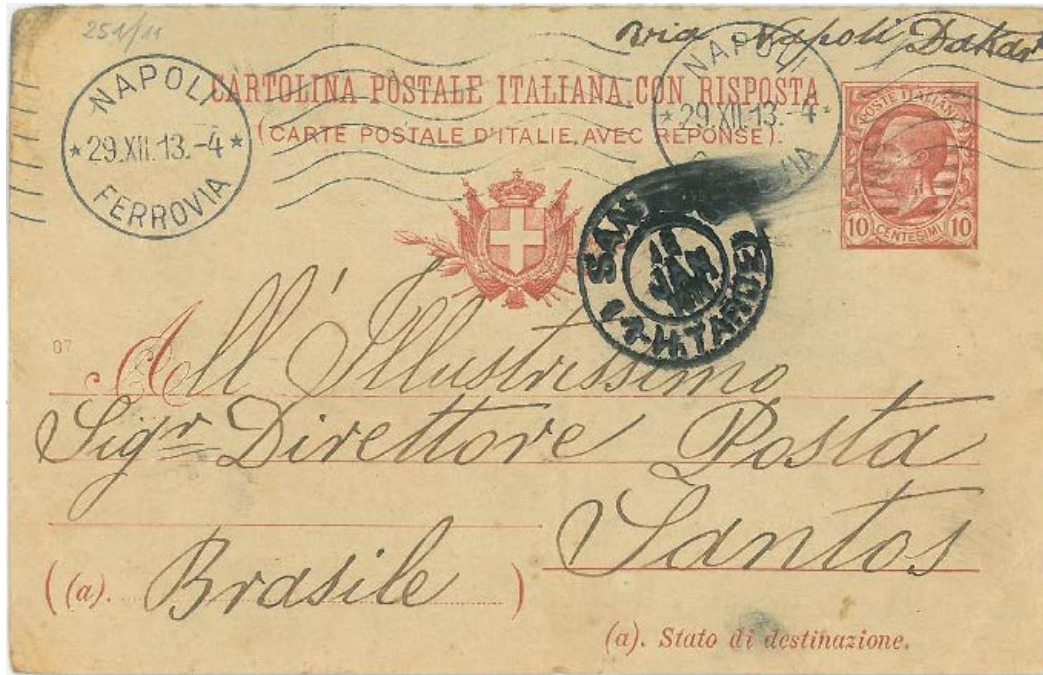 251/11
via Napoli Dakar
NAPOLI
29.XII.13.-4
FERROVIA
NAPOLI
29.XII.13.-4
CARTOLINA POSTALE ITALIANA CON RISPOSTA
(CARTE POSTALE D'ITALIE AVEC RÉPONSE).
POSTE ITALIANE
10 CENTESIMI 10
SAN
JAN
(7-H.TARDE)
07
All' Illustrissimo
Sigr Direttore Posta
Santos
((a). Brasile )
(a). Stato di destinazione.